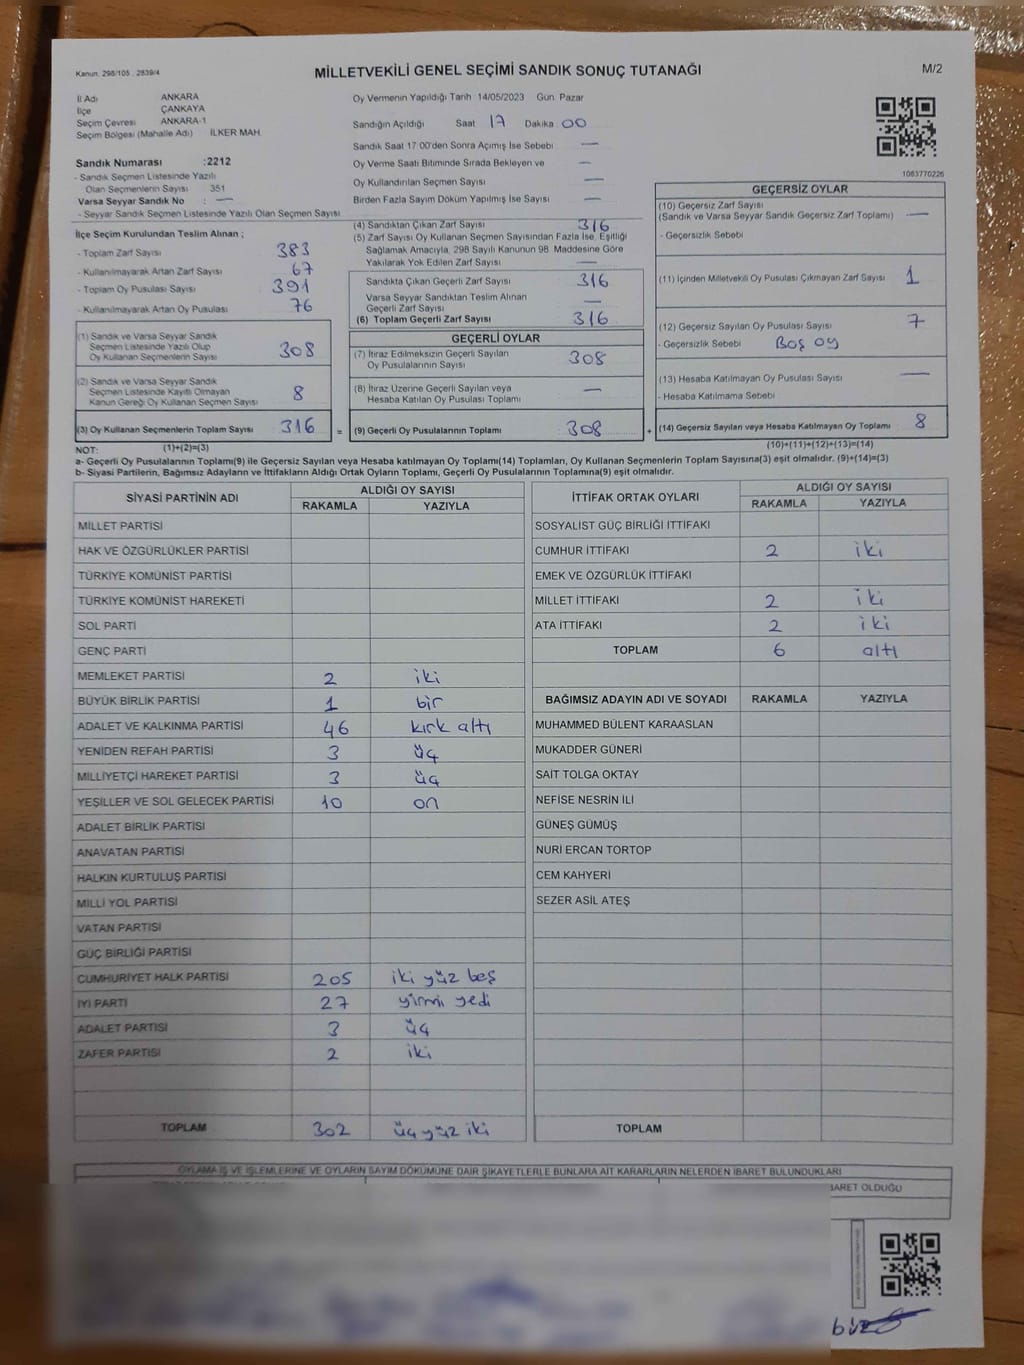 Kanun: 298/105 , 2839/4
MİLLETVEKİLİ GENEL SEÇİMİ SANDIK SONUÇ TUTANAĞI
M/2
İl Adı ANKARA
İlçe ÇANKAYA
Seçim Çevresi ANKARA-1
Seçim Bölgesi (Mahalle Adı) İLKER MAH.
Sandık Numarası :2212
- Sandık Seçmen Listesinde Yazılı
Olan Seçmenlerin Sayısı 351
Varsa Seyyar Sandık No : —
- Seyyar Sandık Seçmen Listesinde Yazılı Olan Seçmen Sayısı
Oy Vermenin Yapıldığı Tarih 14/05/2023 Gün Pazar
Sandığın Açıldığı Saat 17 Dakika 00
Sandık Saat 17:00'den Sonra Açımış İse Sebebi —
Oy Verme Saati Bitiminde Sırada Bekleyen ve —
Oy Kullandırılan Seçmen Sayısı —
Birden Fazla Sayım Döküm Yapılmış İse Sayısı —
1083770226
İlçe Seçim Kurulundan Teslim Alınan ;
- Toplam Zarf Sayısı 383
- Kullanılmayarak Artan Zarf Sayısı 67
- Toplam Oy Pusulası Sayısı 391
- Kullanılmayarak Artan Oy Pusulası 76
(1) Sandık ve Varsa Seyyar Sandık
Seçmen Listesinde Yazılı Olup
Oy Kullanan Seçmenlerin Sayısı 308
(2) Sandık ve Varsa Seyyar Sandık
Seçmen Listesinde Kayıtlı Olmayan
Kanun Gereği Oy Kullanan Seçmen Sayısı 8
(3) Oy Kullanan Seçmenlerin Toplam Sayısı 316 =
(1)+(2)=(3)
(4) Sandıktan Çıkan Zarf Sayısı 316
(5) Zarf Sayısı Oy Kullanan Seçmen Sayısından Fazla İse, Eşitliği
Sağlamak Amacıyla, 298 Sayılı Kanunun 98. Maddesine Göre
Yakılarak Yok Edilen Zarf Sayısı —
Sandıkta Çıkan Geçerli Zarf Sayısı 316
Varsa Seyyar Sandıktan Teslim Alınan
Geçerli Zarf Sayısı —
(6) Toplam Geçerli Zarf Sayısı 316
GEÇERLİ OYLAR
(7) İtiraz Edilmeksizin Geçerli Sayılan
Oy Pusulalarının Sayısı 308
(8) İtiraz Üzerine Geçerli Sayılan veya
Hesaba Katılan Oy Pusulaları Toplamı —
(9) Geçerli Oy Pusulalarının Toplamı 308 +
GEÇERSİZ OYLAR
(10) Geçersiz Zarf Sayısı
(Sandık ve Varsa Seyyar Sandık Geçersiz Zarf Toplamı) —
- Geçersizlik Sebebi
(11) İçinden Milletvekili Oy Pusulası Çıkmayan Zarf Sayısı 1
(12) Geçersiz Sayılan Oy Pusulası Sayısı 7
- Geçersizlik Sebebi Boş oy
(13) Hesaba Katılmayan Oy Pusulası Sayısı —
- Hesaba Katılmama Sebebi
(14) Geçersiz Sayılan veya Hesaba Katılmayan Oy Toplamı 8
(10)+(11)+(12)+(13)=(14)
NOT:
a- Geçerli Oy Pusulalarının Toplamı(9) ile Geçersiz Sayılan veya Hesaba katılmayan Oy Toplamı(14) Toplamları, Oy Kullanan Seçmenlerin Toplam Sayısına(3) eşit olmalıdır. (9)+(14)=(3)
b- Siyasi Partilerin, Bağımsız Adayların ve İttifakların Aldığı Ortak Oyların Toplamı, Geçerli Oy Pusulalarının Toplamına(9) eşit olmalıdır.
SİYASİ PARTİNİN ADI ALDIĞI OY SAYISI
RAKAMLA YAZIYLA
MİLLET PARTİSİ
HAK VE ÖZGÜRLÜKLER PARTİSİ
TÜRKİYE KOMÜNİST PARTİSİ
TÜRKİYE KOMÜNİST HAREKETİ
SOL PARTİ
GENÇ PARTİ
MEMLEKET PARTİSİ 2 iki
BÜYÜK BİRLİK PARTİSİ 1 bir
ADALET VE KALKINMA PARTİSİ 46 kırk altı
YENİDEN REFAH PARTİSİ 3 üç
MİLLİYETÇİ HAREKET PARTİSİ 3 üç
YEŞİLLER VE SOL GELECEK PARTİSİ 10 on
ADALET BİRLİK PARTİSİ
ANAVATAN PARTİSİ
HALKIN KURTULUŞ PARTİSİ
MİLLİ YOL PARTİSİ
VATAN PARTİSİ
GÜÇ BİRLİĞİ PARTİSİ
CUMHURİYET HALK PARTİSİ 205 iki yüz beş
İYİ PARTİ 27 yirmi yedi
ADALET PARTİSİ 3 üç
ZAFER PARTİSİ 2 iki
TOPLAM 302 üç yüz iki
İTTİFAK ORTAK OYLARI ALDIĞI OY SAYISI
RAKAMLA YAZIYLA
SOSYALİST GÜÇ BİRLİĞİ İTTİFAKI
CUMHUR İTTİFAKI 2 iki
EMEK VE ÖZGÜRLÜK İTTİFAKI
MİLLET İTTİFAKI 2 iki
ATA İTTİFAKI 2 iki
TOPLAM 6 altı
BAĞIMSIZ ADAYIN ADI VE SOYADI RAKAMLA YAZIYLA
MUHAMMED BÜLENT KARAASLAN
MUKADDER GÜNERİ
SAİT TOLGA OKTAY
NEFİSE NESRİN İLİ
GÜNEŞ GÜMÜŞ
NURİ ERCAN TORTOP
CEM KAHYERİ
SEZER ASİL ATEŞ
TOPLAM
OYLAMA İŞ VE İŞLEMLERİNE VE OYLARIN SAYIM DÖKÜMÜNE DAİR ŞİKAYETLERLE BUNLARA AİT KARARLARIN NELERDEN İBARET BULUNDUKLARI
BARET OLDUĞU